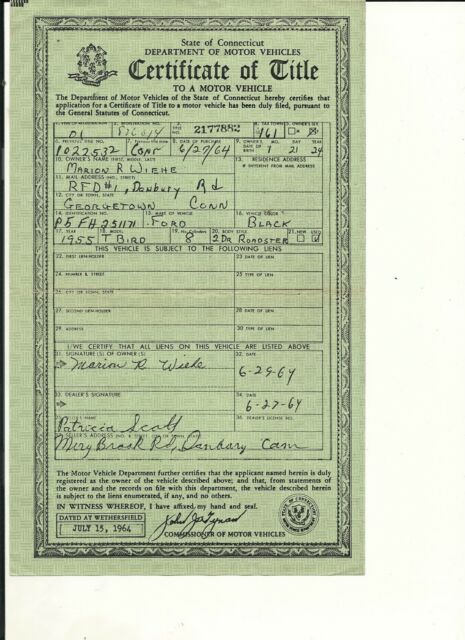 State of Connecticut
DEPARTMENT OF MOTOR VEHICLES
Certificate of Title
TO A MOTOR VEHICLE
The Department of Motor Vehicles of the State of Connecticut hereby certifies that
application for a Certificate of Title to a motor vehicle has been duly filed, pursuant to
the General Statutes of Connecticut.
01 2177882 161
1022572 CONN 6/27/64 7 21 24
10. OWNER'S NAME (FIRST, MIDDLE, LAST) RESIDENCE ADDRESS
MARION R WIEHE IF DIFFERENT FROM MAIL ADDRESS
11. MAIL ADDRESS (NO., STREET)
RFD #1, DANBURY Rd
12. CITY OR TOWN, STATE
GEORGETOWN CONN
14. IDENTIFICATION NO. 15. MAKE OF VEHICLE 16. VEHICLE COLOR
P5FH251171 FORD BLACK
17. YEAR 18. MODEL 19. No. Cylinders 20. BODY STYLE 21. NEW USED
1955 T BIRD 8 2DR ROADSTER
THIS VEHICLE IS SUBJECT TO THE FOLLOWING LIENS
22. FIRST LIEN-HOLDER 23. DATE OF LIEN
24. NUMBER & STREET 25. TYPE OF LIEN
26. CITY OR TOWN, STATE
27. SECOND LIEN-HOLDER 28. DATE OF LIEN
29. ADDRESS 30. TYPE OF LIEN
I/WE CERTIFY THAT ALL LIENS ON THIS VEHICLE ARE LISTED ABOVE
31. SIGNATURE (S) OF OWNER (S) 32. DATE
Marion R Wiehe 6-29-64
33. DEALER'S SIGNATURE 34. DATE
6-27-64
NAME 36. DEALER'S LICENSE NO.
Patricia Scalf
SELLER'S ADDRESS (NO. & STREET, CITY OR TOWN, STATE)
Rd, Danbury Conn
The Motor Vehicle Department further certifies that the applicant named herein is duly
registered as the owner of the vehicle described above; and that, from statements of
the owner and the records on file with this department, the vehicle described herein
is subject to the liens enumerated, if any, and no others.
IN WITNESS WHEREOF, I have affixed my hand and seal.
DATED AT WETHERSFIELD
JULY 15, 1964
John J. Tynan
COMMISSIONER OF MOTOR VEHICLES